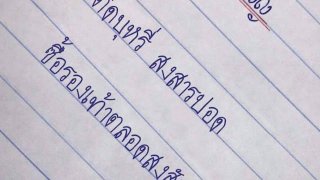 ติดบุหรี่ สงสารปอด
ซื้อรองเท้าตลอดสงสั